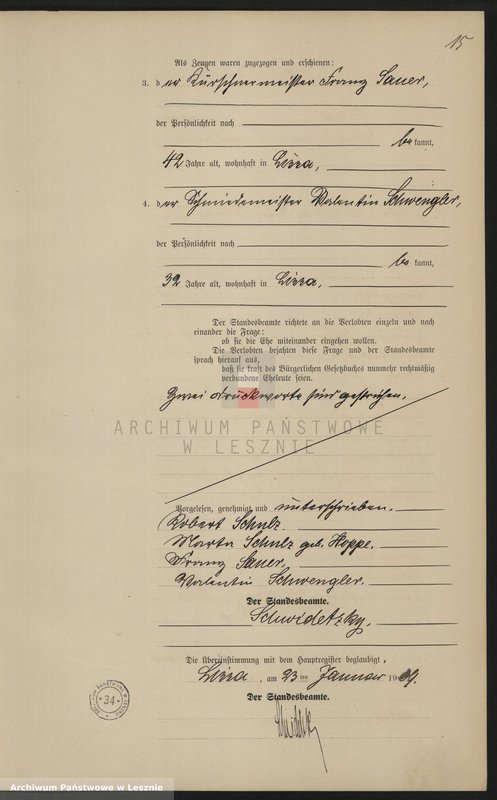 15
Als Zeugen waren zugezogen und erschienen:
3. der Kürschnermeister Franz Sauer,
der Persönlichkeit nach
bekannt,
42 Jahre alt, wohnhaft in Lissa,
4. der Schmiedemeister Valentin Schwengler,
der Persönlichkeit nach
bekannt,
32 Jahre alt, wohnhaft in Lissa,
Der Standesbeamte richtete an die Verlobten einzeln und nach
einander die Frage:
ob sie die Ehe miteinander eingehen wollen.
Die Verlobten bejahten diese Frage und der Standesbeamte
sprach hierauf aus,
daß sie kraft des Bürgerlichen Gesetzbuches nunmehr rechtmäßig
verbundene Eheleute seien.
Zwei Druckworte sind gestrichen.
ARCHIWUM PAŃSTWOWE
W LESZNIE
Vorgelesen, genehmigt und unterschrieben.
Robert Schulz
Marta Schulz geb. Hoppe.
Franz Sauer.
Valentin Schwengler.
Der Standesbeamte.
Schwidetzky.
Die Übereinstimmung mit dem Hauptregister beglaubigt,
Lissa, am 23ten Januar 1904.
Der Standesbeamte.
34
Archiwum Państwowe w Lesznie